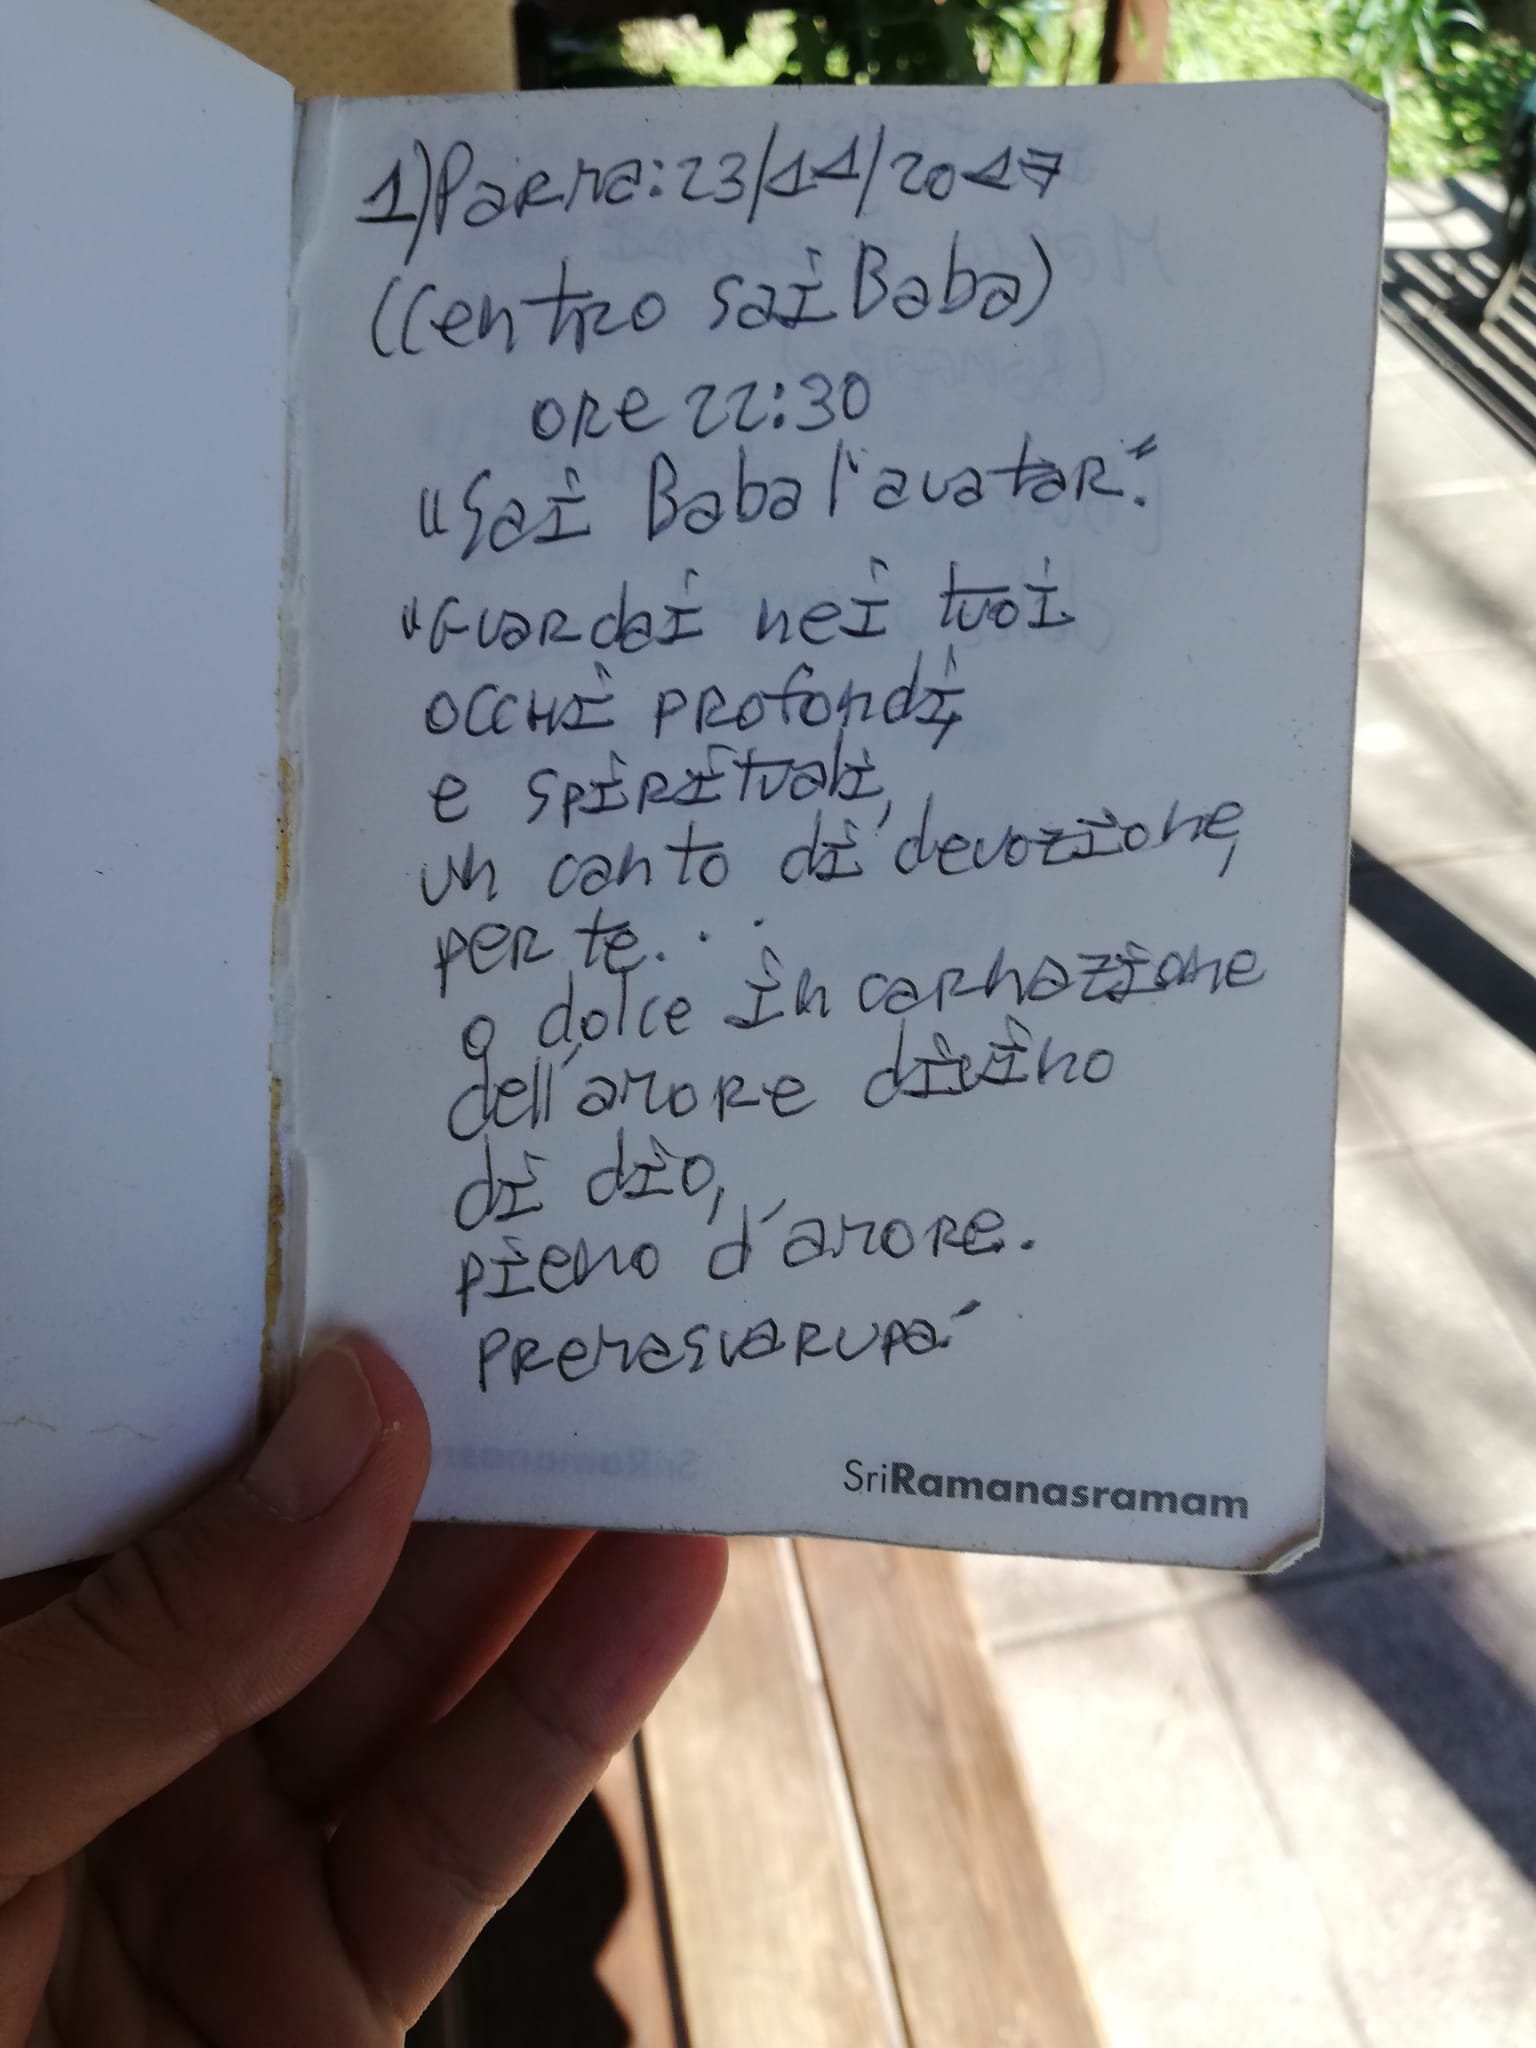 1) Parma: 23/11/2017
(Centro Sai Baba)
ore 22:30
"Sai Baba l'avatar."
"Guardai nei tuoi
occhi profondi,
e spirituali,
un canto di devozione,
per te...
o dolce incarnazione
dell'amore divino
di dio,
pieno d'amore.
premasvarupa"
SriRamanasramam